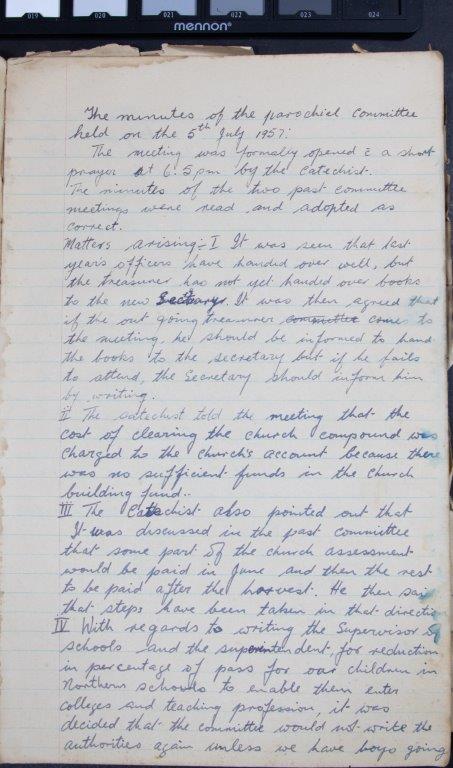 019 020 021 022 023 024
mennon®
The minutes of the parochial committee
held on the 5th July 1957:
The meeting was formally opened c̄ a short
prayer at 6.5pm by the Catechist.
The minutes of the two past committee
meetings were read and adopted as
correct.
Matters arising:- I It was seen that last
year's officers have handed over well, but
the treasurer has not yet handed over books
to the new Secretary. It was then agreed that
if the out going treasurer committee comes to
the meeting, he should be informed to hand
the books to the secretary but if he fails
to attend, the Secretary should inform him
by writing.
II The catechist told the meeting that the
cost of clearing the church compound was
charged to the church's account because there
was no sufficient funds in the church
building fund..
III The Catechist also pointed out that
It was discussed in the past committee
that some part of the church assessment
would be paid in June and then the rest
to be paid after the harvest. He then said
that steps have been taken in that directio
IV With regards to writing the Supervisor of
schools and the superentendent, for reduction
in percentage of pass for our children in
Northern schools to enable them enter
colleges and teaching profession, it was
decided that the committee would not write the
authorities again unless we have boys going